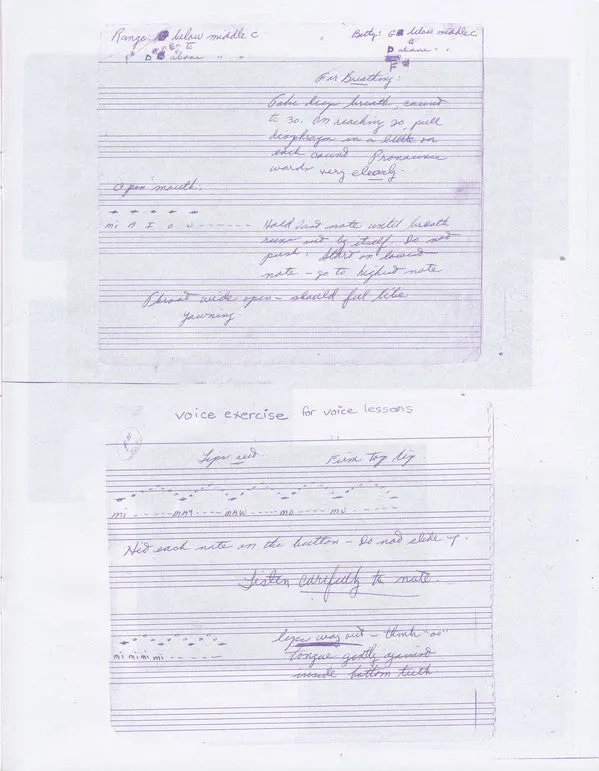 Range: G below middle C
to
D above " "
Betty: G below middle C
D above " "
F#
For Breathing:
Take deep breath, count
to 30. On reaching 20, pull
diaphragm in a little on
each count. Pronounce
words very clearly.
Open mouth.
mi A I O U - - - - - - -
Hold last note until breath
runs out by itself. Do not
push. Start on lowest
note - go to highest note
Throat wide open - should feel like
yawning.
voice exercise for voice lessons
Lips out
Firm top lip
mi - - - - - MAY - - - - MAW - - - - MO - - - - MU - - - -
Hit each note on the button - Do not slide up.
Listen carefully to note.
lips way out - think "oo"
Tongue gently against
inside bottom teeth
mi mi mi mi - - - - - -